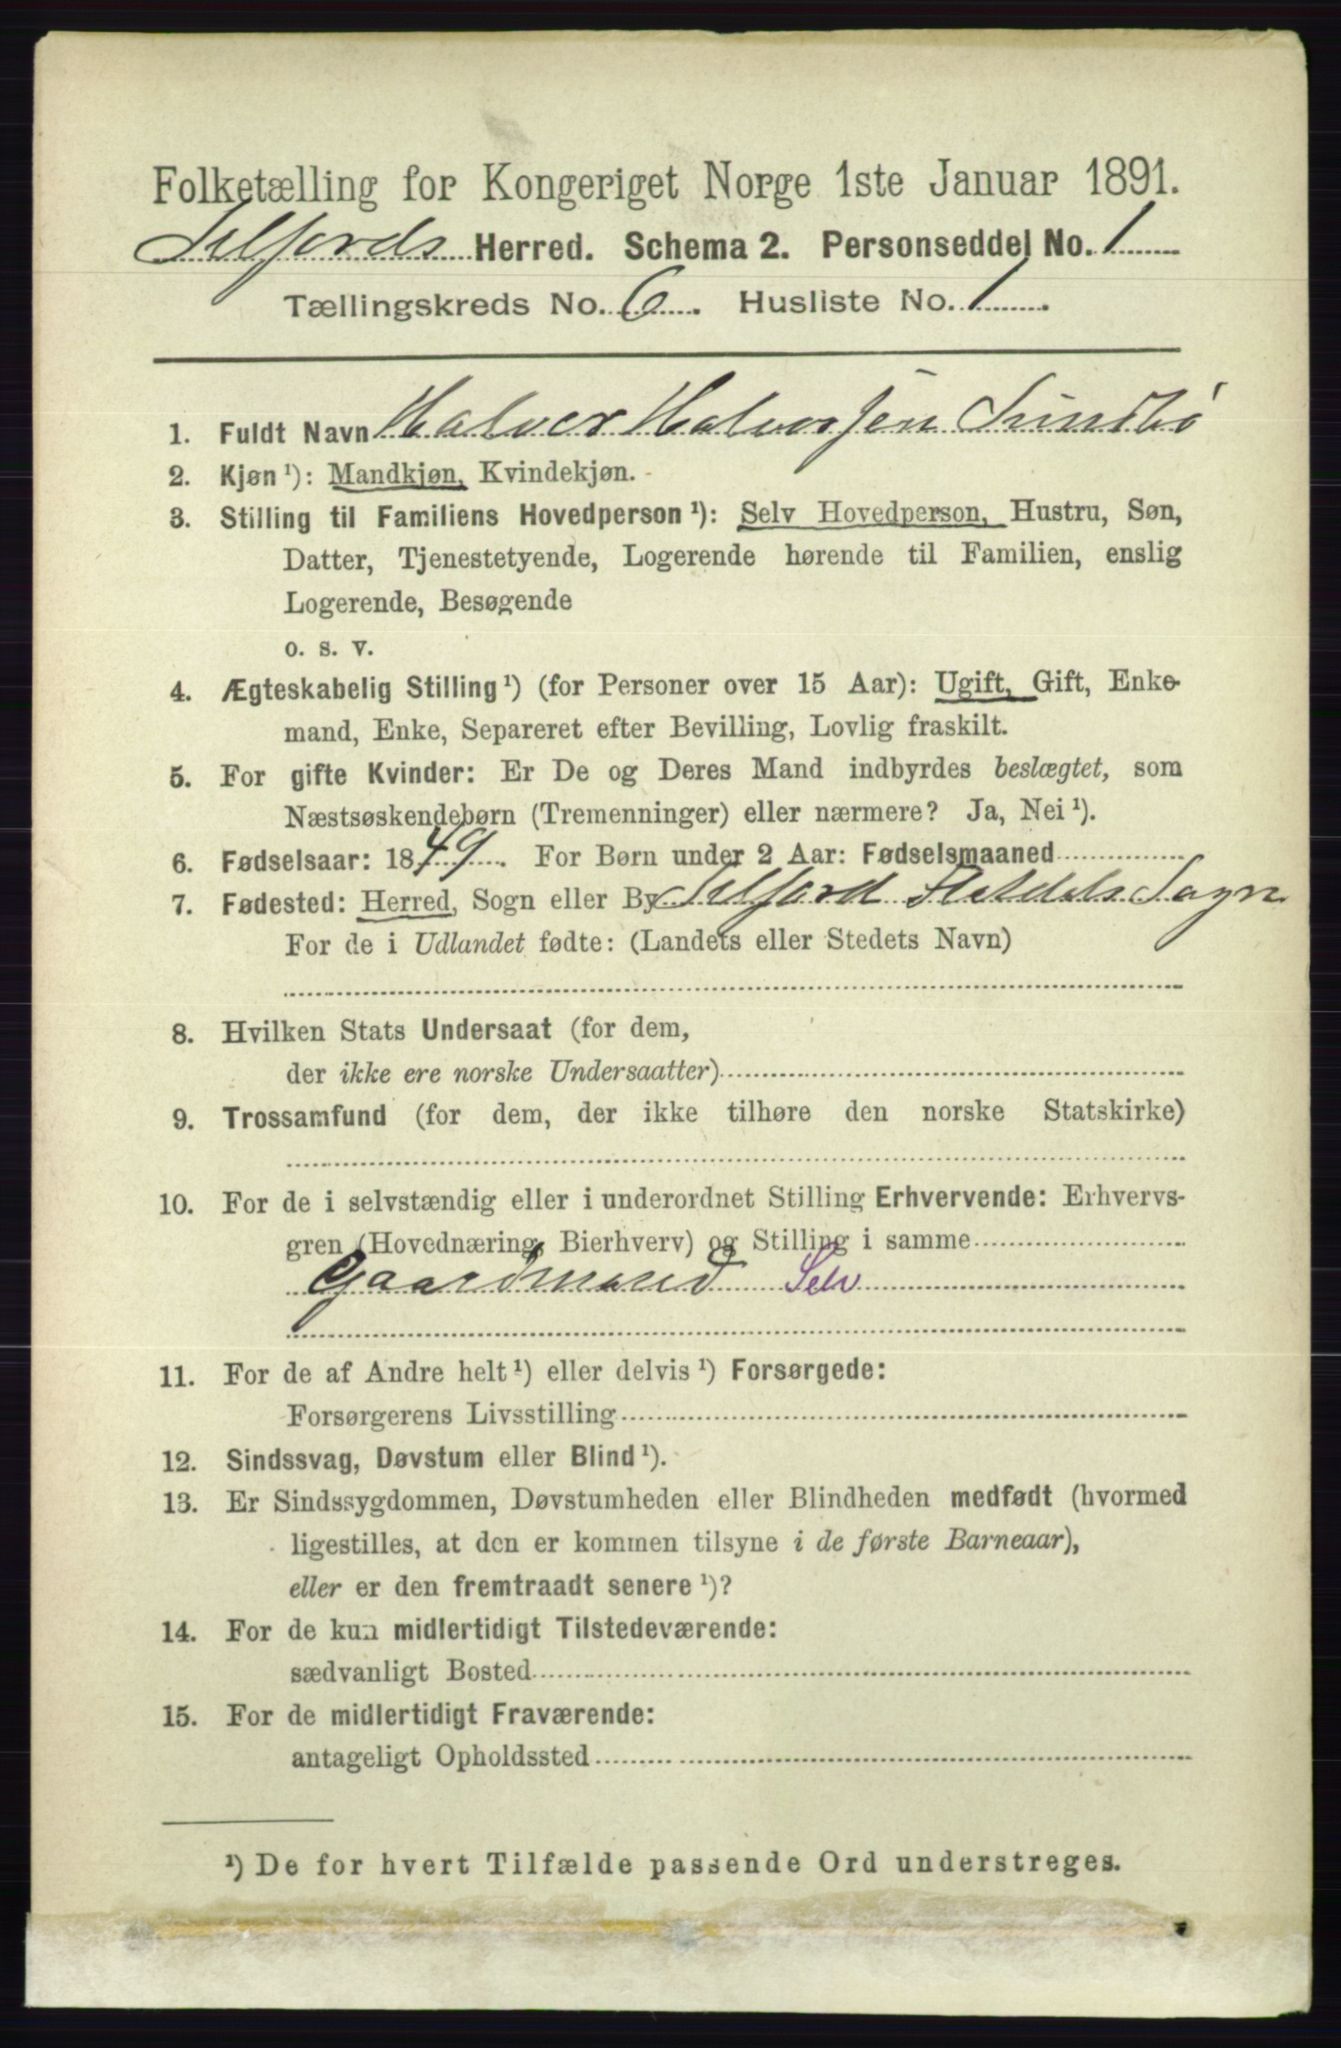 Folketælling for Kongeriget Norge 1ste Januar 1891.
Selfjords Herred. Schema 2. Personseddel No. 1
Tællingskreds No. 6. Husliste No. 1.
1. Fuldt Navn Halvor Halvorsen Sundbø
2. Kjøn ¹): Mandkjøn, Kvindekjøn.
3. Stilling til Familiens Hovedperson ¹): Selv Hovedperson, Hustru, Søn,
Datter, Tjenestetyende, Logerende hørende til Familien, enslig
Logerende, Besøgende
o. s. v.
4. Ægteskabelig Stilling ¹) (for Personer over 15 Aar): Ugift, Gift, Enke-
mand, Enke, Separeret efter Bevilling, Lovlig fraskilt.
5. For gifte Kvinder: Er De og Deres Mand indbyrdes beslægtet, som
Næstsøskendebørn (Tremenninger) eller nærmere? Ja, Nei ¹).
6. Fødselsaar: 1849. For Børn under 2 Aar: Fødselsmaaned
7. Fødested: Herred, Sogn eller By Selfjord Flatdals Sogn
For de i Udlandet fødte: (Landets eller Stedets Navn)
8. Hvilken Stats Undersaat (for dem,
der ikke ere norske Undersaatter)
9. Trossamfund (for dem, der ikke tilhøre den norske Statskirke)
10. For de i selvstændig eller i underordnet Stilling Erhvervende: Erhvervs-
gren (Hovednæring, Bierhverv) og Stilling i samme
Gaardmand Selv
11. For de af Andre helt ¹) eller delvis ¹) Forsørgede:
Forsørgerens Livsstilling
12. Sindssvag, Døvstum eller Blind ¹).
13. Er Sindssygdommen, Døvstumheden eller Blindheden medfødt (hvormed
ligestilles, at den er kommen tilsyne i de første Barneaar),
eller er den fremtraadt senere ¹)?
14. For de kun midlertidigt Tilstedeværende:
sædvanligt Bosted
15. For de midlertidigt Fraværende:
antageligt Opholdssted
¹) De for hvert Tilfælde passende Ord understreges.